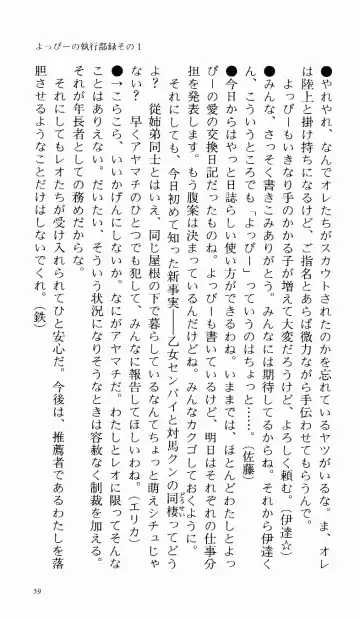 よっぴーの執行部録その1
●やれやれ、なんでオレたちがスカウトされたのかを忘れているヤツがいるな。ま、オレ
は陸上と掛け持ちになるけど、ご指名とあらば微力ながら手伝わせてもらうんで。
よっぴーもいきなり手のかかる子が増えて大変だろうけど、よろしく頼む。（伊達☆）
●みんな、さっそく書きこみありがとう。みんなには期待してるからね。それから伊達く
ん、こういうところでも「よっぴー」っていうのはちょっと……。（佐藤）
●今日からはやっと日誌らしい使い方ができるわね。いままでは、ほとんどわたしとよっ
ぴーの愛の交換日記だったものね。よっぴーも書いているけど、明日はそれぞれの仕事分
担を発表します。もう腹案は決まっているんだけどね。みんなカクゴしておくように。
それにしても、今日初めて知った新事実――乙女センパイと対馬クンの同棲ってどう
どうせい
よ？　従姉弟同士とはいえ、同じ屋根の下で暮らしているなんてちょっと萌えシチュじゃ
ない？　早くアヤマチのひとつでも犯して、みんなに報告してほしいわね。（エリカ）
●→こらこら、いいかげんにしないか。なにがアヤマチだ。わたしとレオに限ってそんな
ことはありえない。だいたい、そういう状況になりそうなときは容赦なく制裁を加える。
それが年長者としての務めだからな。
それにしてもレオたちが受け入れられてひと安心だ。今後は、推薦者であるわたしを落
胆させるようなことだけはしないでくれ。（鉄）
59